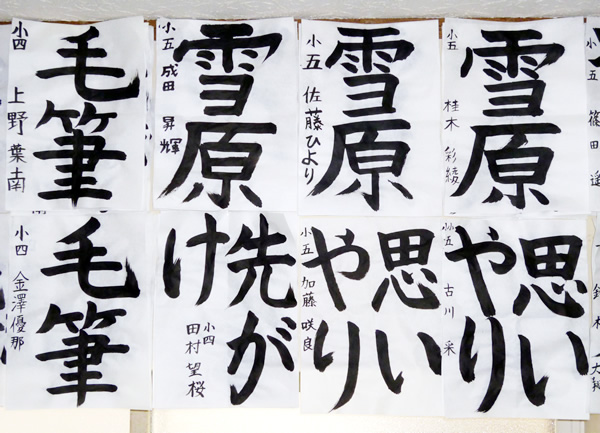 小五 篠田 遥
雪原
小五 桂木 彩綾
雪原
小五 佐藤ひより
雪原
小五 成田 昇輝
毛筆
小四 上野 葉南
思い
やり
小五 古川 采
思い
やり
小五 加藤 咲良
先が
け
小四
田村 望桜
毛筆
小四 金澤優那